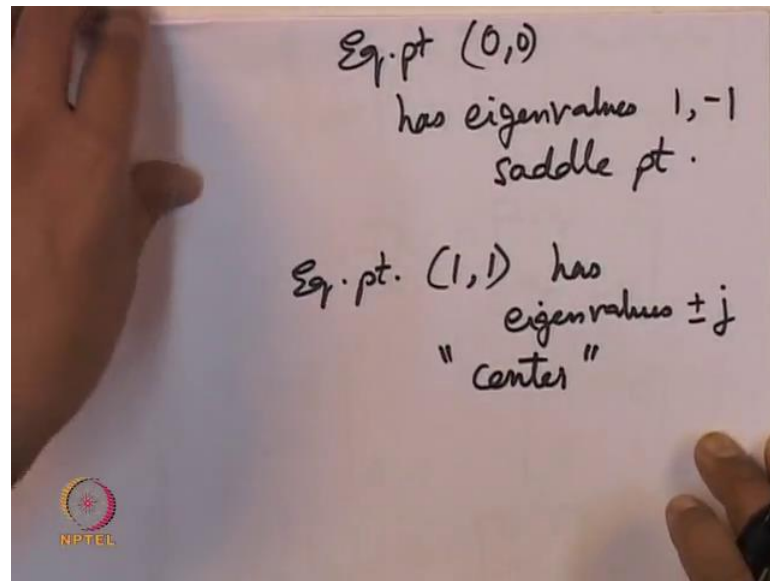 Eq.pt (0,0)
has eigenvalues 1,-1
saddle pt.
Eq.pt. (1,1) has
eigenvalues ±j
"center"
NPTEL